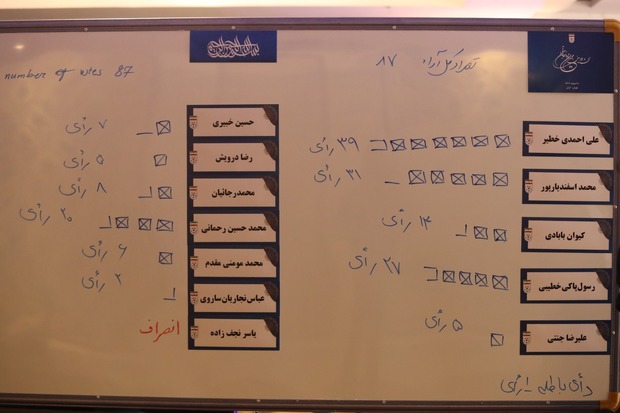 number of votes 87
تعداد کل آراء ۸۷
علی احمدی خطیر
۳۹ رأی
محمد اسفندیارپور
۳۱ رأی
کیوان بابادی
۱۴ رأی
رسول پاکی خطیبی
۲۷ رأی
علیرضا جنتی
۵ رأی
حسین خبیری
۷ رأی
رضا درویش
۵ رأی
محمدرجائیان
۸ رأی
محمد حسین رحمانی
۲۰ رأی
محمد مومنی مقدم
۶ رأی
عباس نجاریان ساروی
۲ رأی
یاسر نجف زاده
انصراف
رأی باطله ۱ رأی